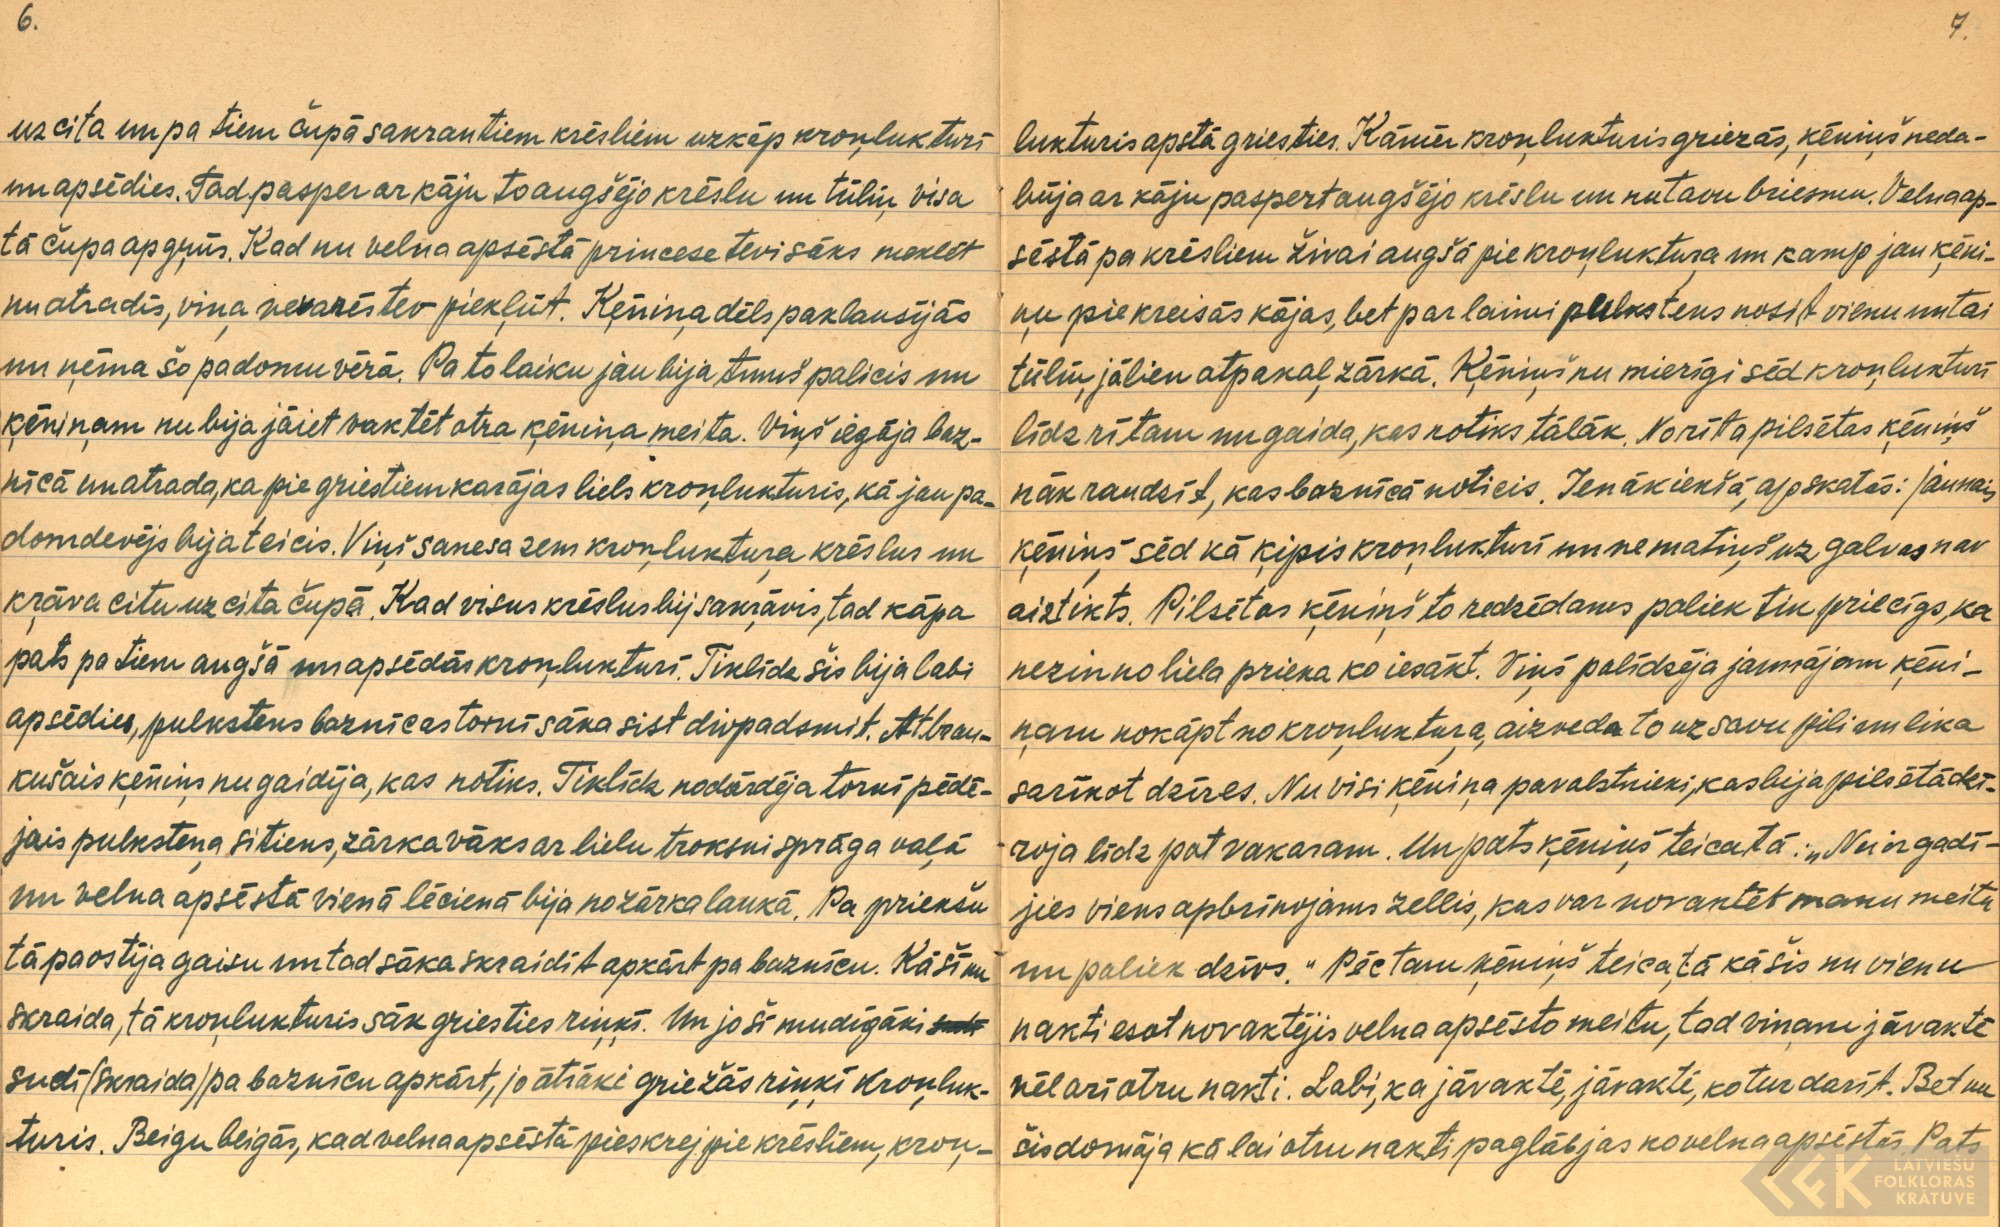 6.
uz cita un pa tiem čupā sakrautiem krēsliem uzkāp kroņlukturī
un apsēdies. Tad pasper ar kāju to augšējo krēslu un tūliņ visa
tā čupa apgrūs. Kad nu velna apsēstā princese tevi sāks meklēt
un atradīs, viņa nevarēs tev piekļūt. Ķēniņa dēls paklausījās
un ņēma šo padomu vērā. Pa to laiku jau bija tumš palicis un
ķēniņam nu bija jāiet vaktēt otra ķēniņa meita. Viņš iegāja baz-
nīcā un atrada, ka pie griestiem karājas liels kroņlukturis, kā jau pa-
domdevējs bija teicis. Viņš sanesa zem kroņluktuŗa krēslus un
kŗāva citu uz cita čupā. Kad visus krēslus bij sakŗāvis, tad kāpa
pats pa tiem augšā un apsēdās kroņlukturī. Tiklīdz šis bija labi
apsēdies, pulkstens baznīcas tornī sāka sist divpadsmit. Atbrau-
kušais ķēniņs nu gaidīja, kas notiks. Tiklīdz nodārdēja tornī pēdē-
jais pulksteņa sitiens, zārka vāks ar lielu troksni sprāga vaļā
un velna apsēstā vienā lēcienā bija no zārka laukā. Pa priekšu
tā paostīja gaisu un tad sāka skraidīt apkārt pa baznīcu. Kā šī nu
skraida, tā kroņlukturis sāk griesties riņķī. Un jo šī mudīgāki
sudī /skraida/ pa baznīcu apkārt, jo ātrāki griežās riņķī kroņluk-
turis. Beigu beigās, kad velna apsēstā pieskrej pie krēsliem, kroņ-
7.
lukturis apstā griesties. Kāmēr kroņlukturis griezās, ķēniņš neda-
būja ar kāju paspert augšējo krēslu un nu tavu briesmu. Velna ap-
sēstā pa krēsliem živai augšā pie kroņluktuŗa un kamp jau ķēni-
ņu pie kreisās kājas, bet par laimi pulkstens nosit vienu un tai
tūliņ jālien atpakaļ zārkā. Ķēniņš nu mierīgi sēd kroņlukturī
līdz rītam un gaida, kas notiks tālāk. No rīta pilsētas ķēniņš
nāk raudzīt, kas baznīcā noticis. Ienāk iekšā, apskatās: jaunais
ķēniņš sēd kā ķipis kroņlukturī un ne matiņš uz galvas nav
aiztikts. Pilsētas ķēniņš to redzēdams paliek tik priecīgs, ka
nezin no liela prieka ko iesākt. Viņš palīdzēja jaunājam ķēni-
ņam nokāpt no kroņluktuŗa, aizveda to uz savu pili un lika
sarīkot dzīres. Nu visi ķēniņa pavalstnieki, kas bija pilsētā dzī-
roja līdz pat vakaram. Un pats ķēniņš teica tā: „Nu ir gadī-
jies viens apbrīnojams zellis, kas var novaktēt manu meitu
un paliek dzīvs." Pēc tam ķēniņš teica, tā kā šis nu vienu
nakti esot novaktējis velna apsēsto meitu, tad viņam jāvaktē
vēl arī otru nakti. Labi, ka jāvaktē, jāvaktē, ko tur darīt. Bet nu
šis domāja kā lai otru nakti paglābjas no velna apsēstās. Pats
LATVIEŠU
FOLKLORAS
KRĀTUVE